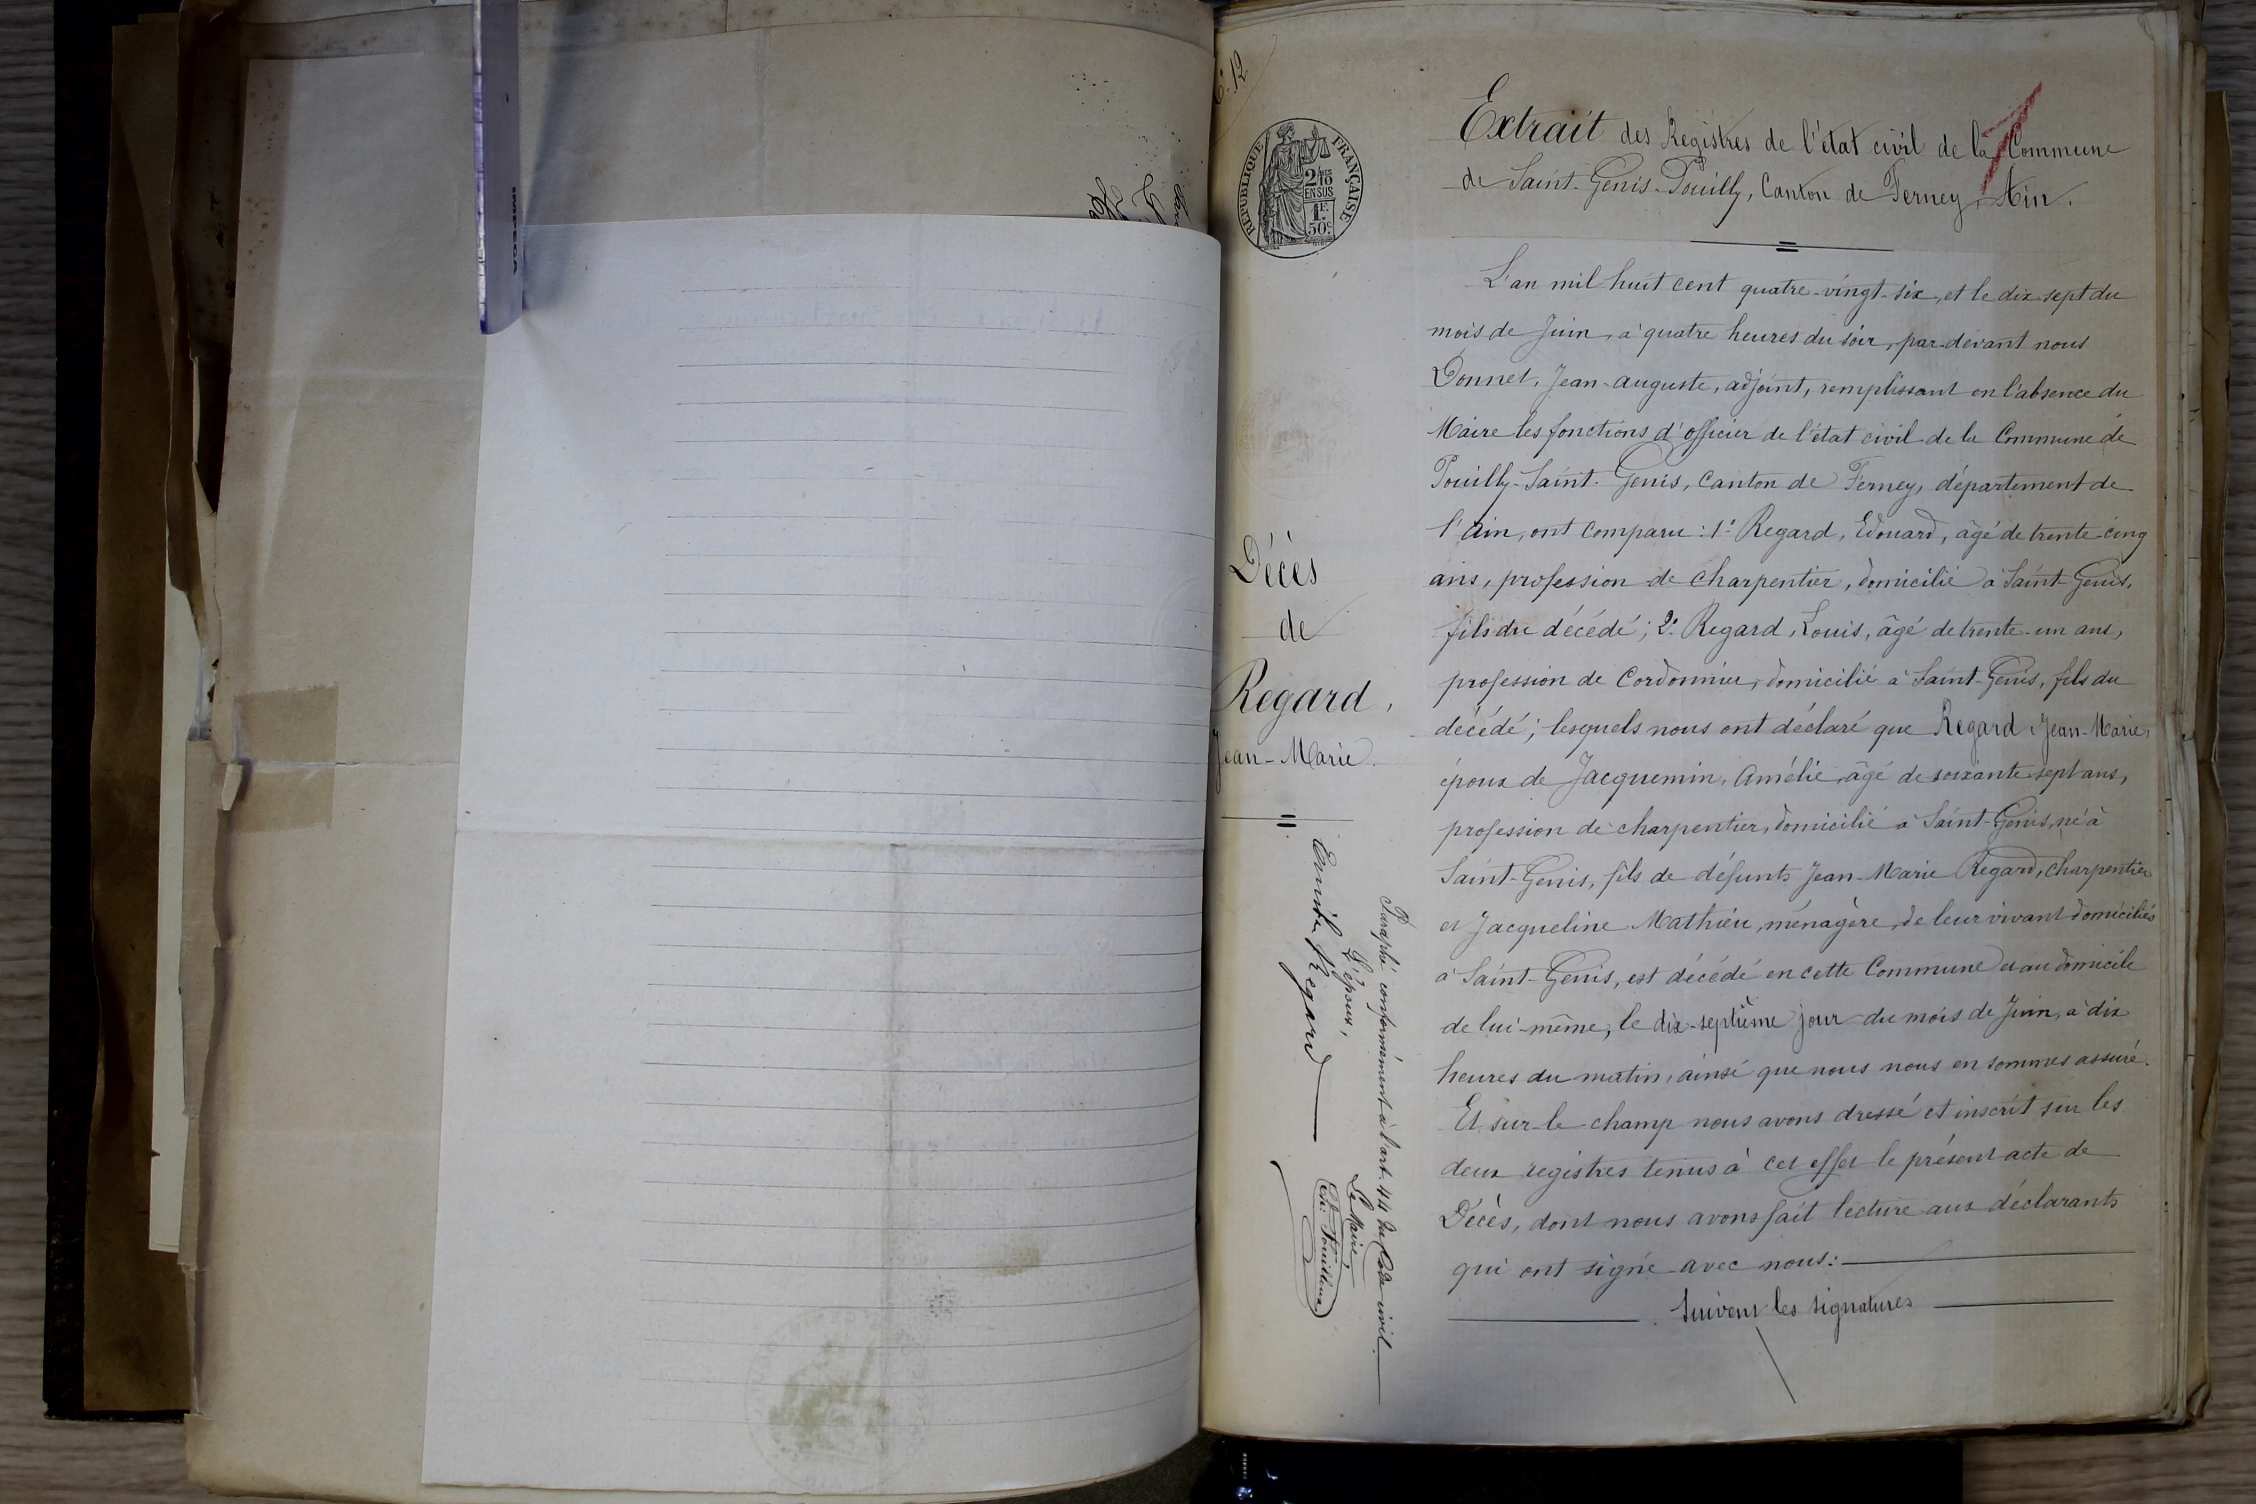 : 12
RÉPUBLIQUE FRANÇAISE
2/10 EN SUS
1F.
50c
Extrait des Registres de l'état civil de la Commune
de Saint-Genis-Pouilly, Canton de Ferney, Ain.
L'an mil huit cent quatre-vingt-six, et le dix sept du
mois de Juin, à quatre heures du soir, par-devant nous
Donnet, Jean-Auguste, adjoint, remplissant en l'absence du
Maire les fonctions d'officier de l'état civil de la Commune de
Pouilly-Saint-Genis, Canton de Ferney, département de
l'Ain, ont comparu : 1° Regard, Edouard, âgé de trente-cinq
ans, profession de charpentier, domicilié à Saint-Genis,
fils du décédé; 2° Regard, Louis, âgé de trente-un ans,
profession de Cordonnier, domicilié à Saint-Genis, fils du
décédé; lesquels nous ont déclaré que Regard, Jean-Marie,
époux de Jacquemin, Amélie, âgé de soixante-sept ans,
profession de charpentier, domicilié à Saint-Genis, né à
Saint-Genis, fils de défunts Jean-Marie Regard, charpentier
et Jacqueline Mathieu, ménagère, de leur vivant domiciliés
à Saint-Genis, est décédé en cette Commune et au domicile
de lui-même, le dix-septième jour du mois de Juin, à dix
heures du matin, ainsi que nous nous en sommes assuré.
Et sur-le-champ nous avons dressé et inscrit sur les
deux registres tenus à cet effet le présent acte de
Décès, dont nous avons fait lecture aux déclarants
qui ont signé avec nous:
Suivent les signatures
Décès
de
Regard,
Jean-Marie.
Paraphé conformément à l'art. 44 du Code civil.
L'époux,
Le Maire,
Regard